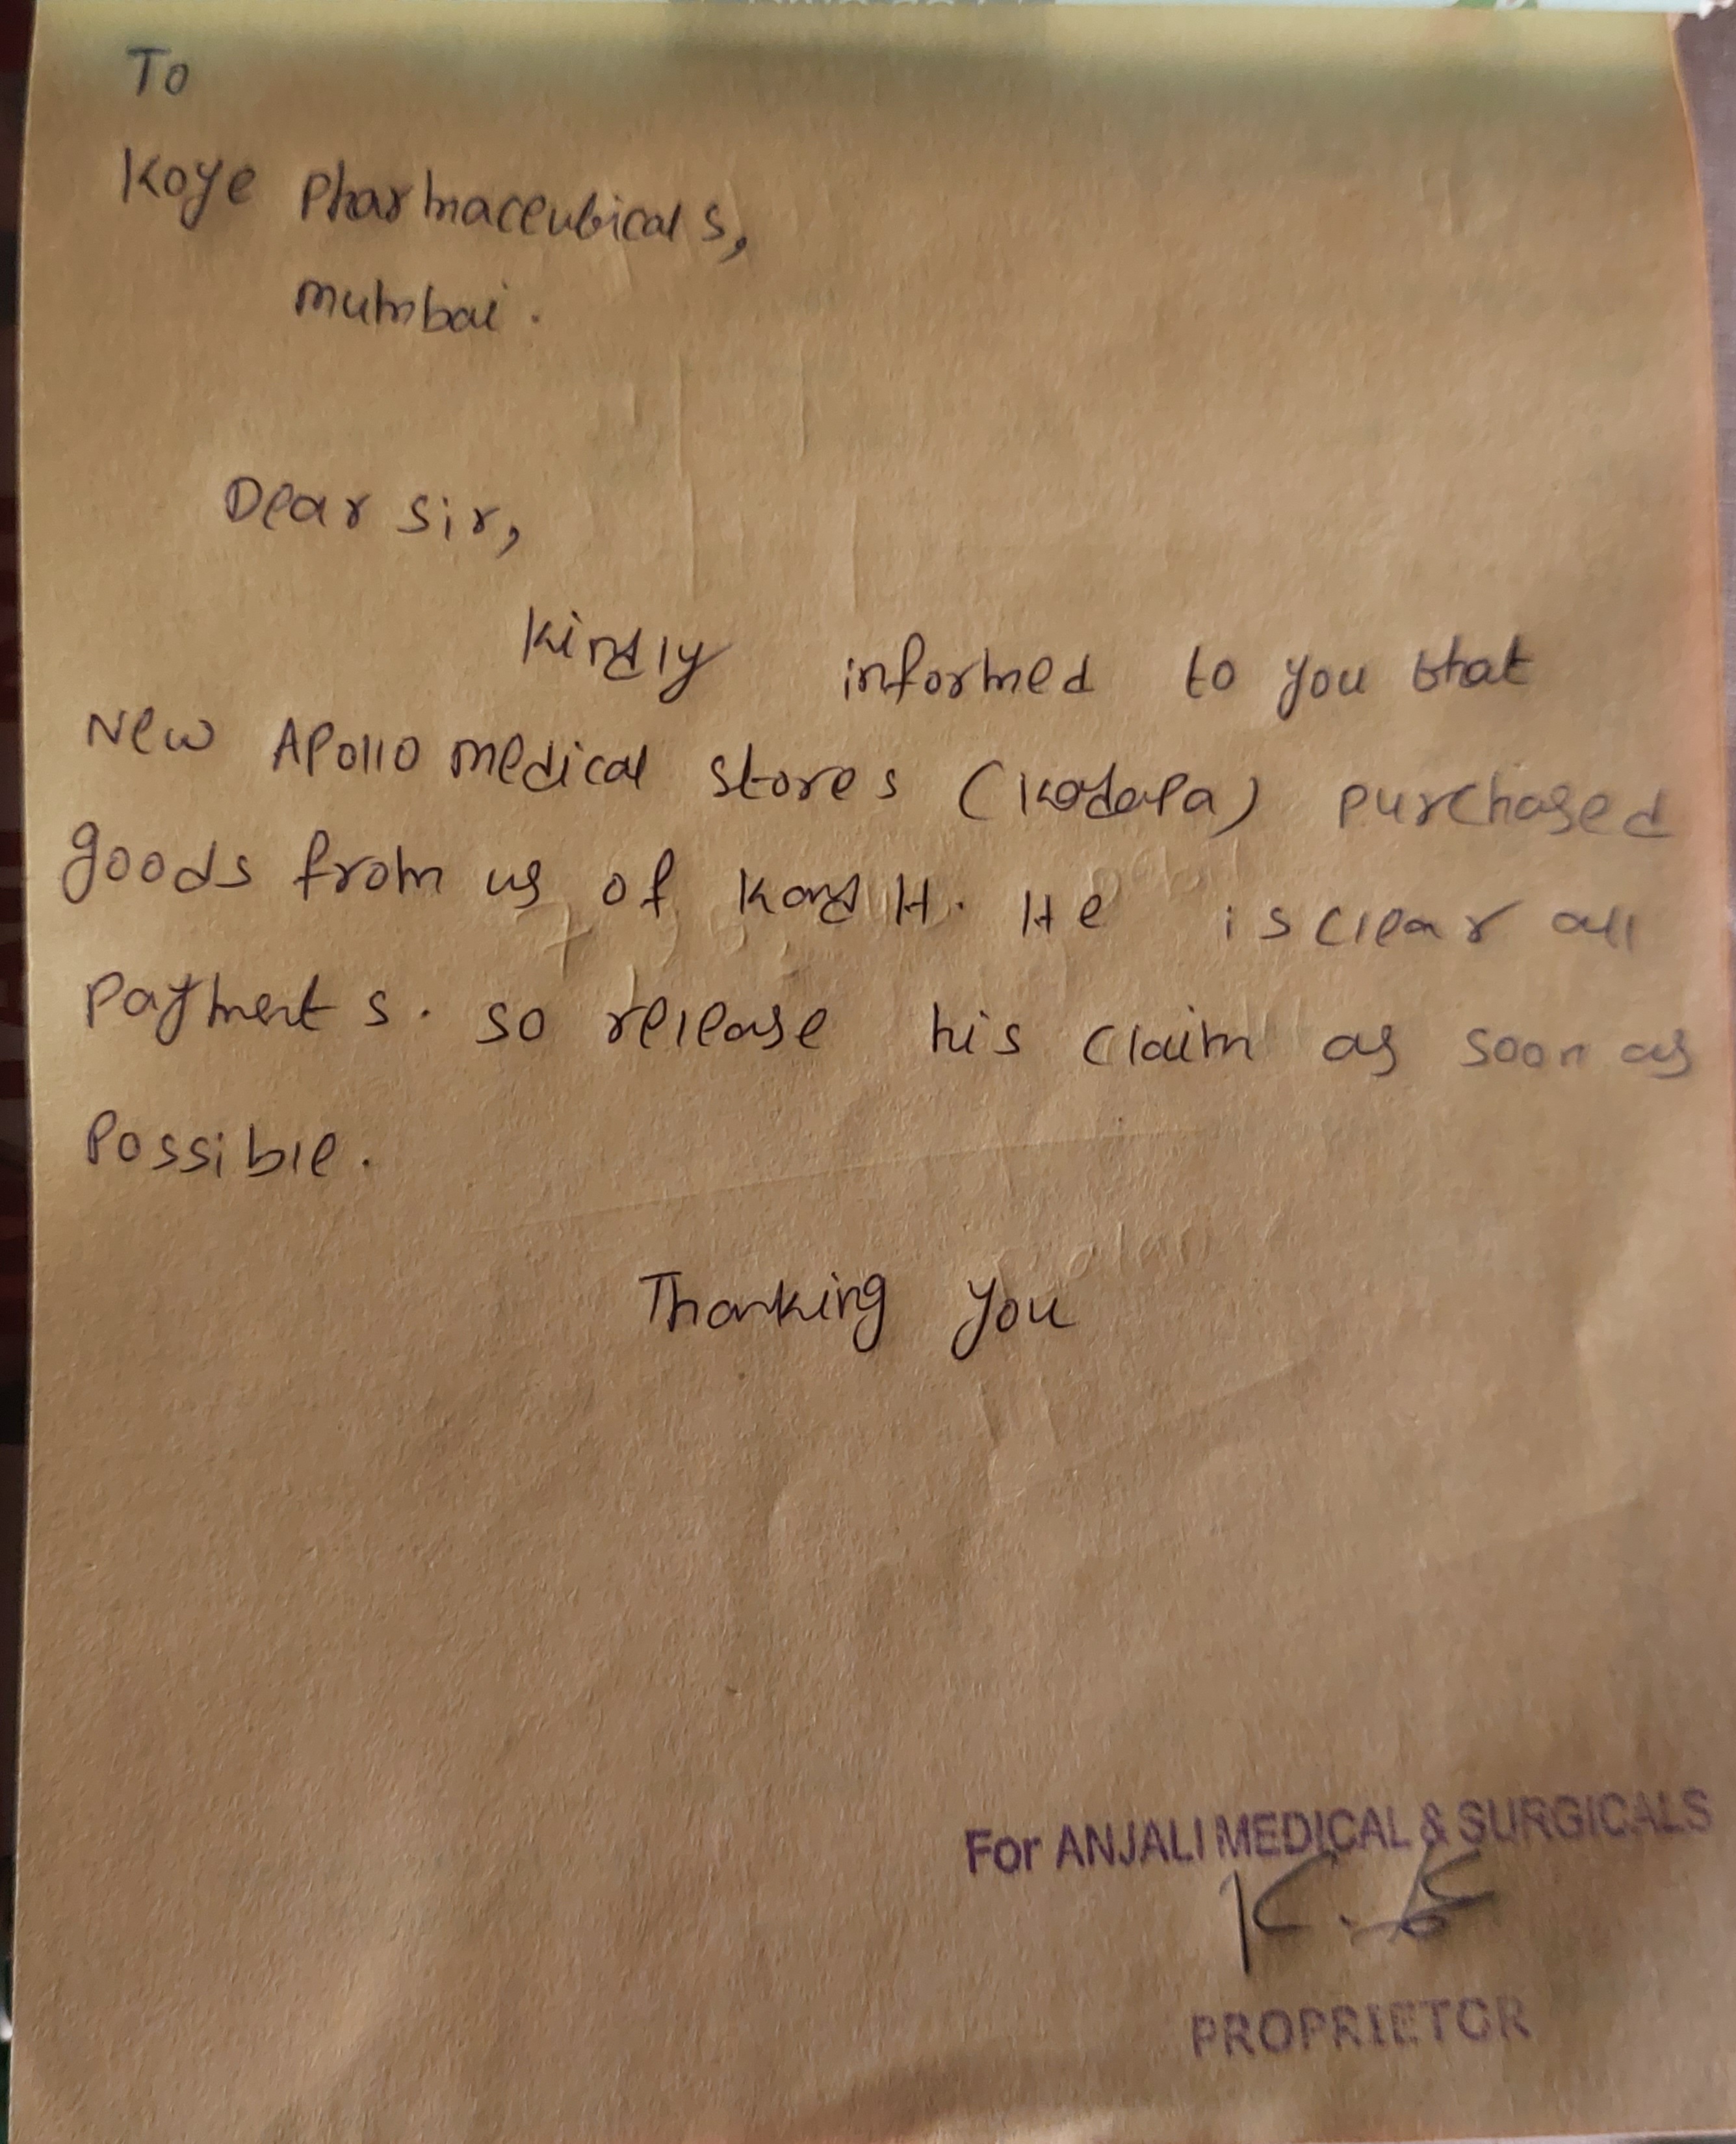 To
Koye Pharmaceuticals,
mumbai.
Dear Sir,
Kindly informed to you that
New Apollo medical stores (Kadapa) purchased
goods from us of H. He is clear all
payments. so release his claim as soon as
Possible.
Thanking you
For ANJALI MEDICAL & SURGICALS
PROPRIETOR